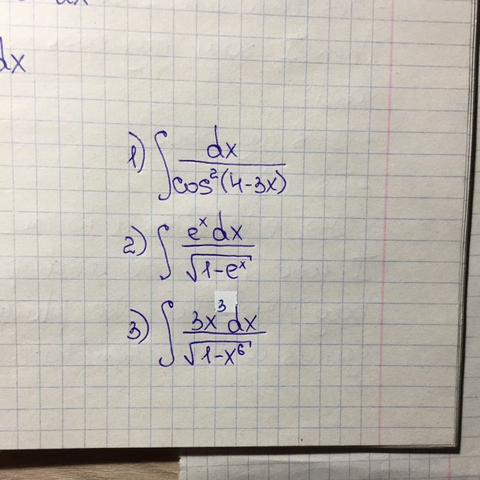 dx
dx
1) ∫ dx / cos²(4-3x)
2) ∫ eˣ dx / √(1-eˣ)
3) ∫ 3x³ dx / √(1-x⁶)